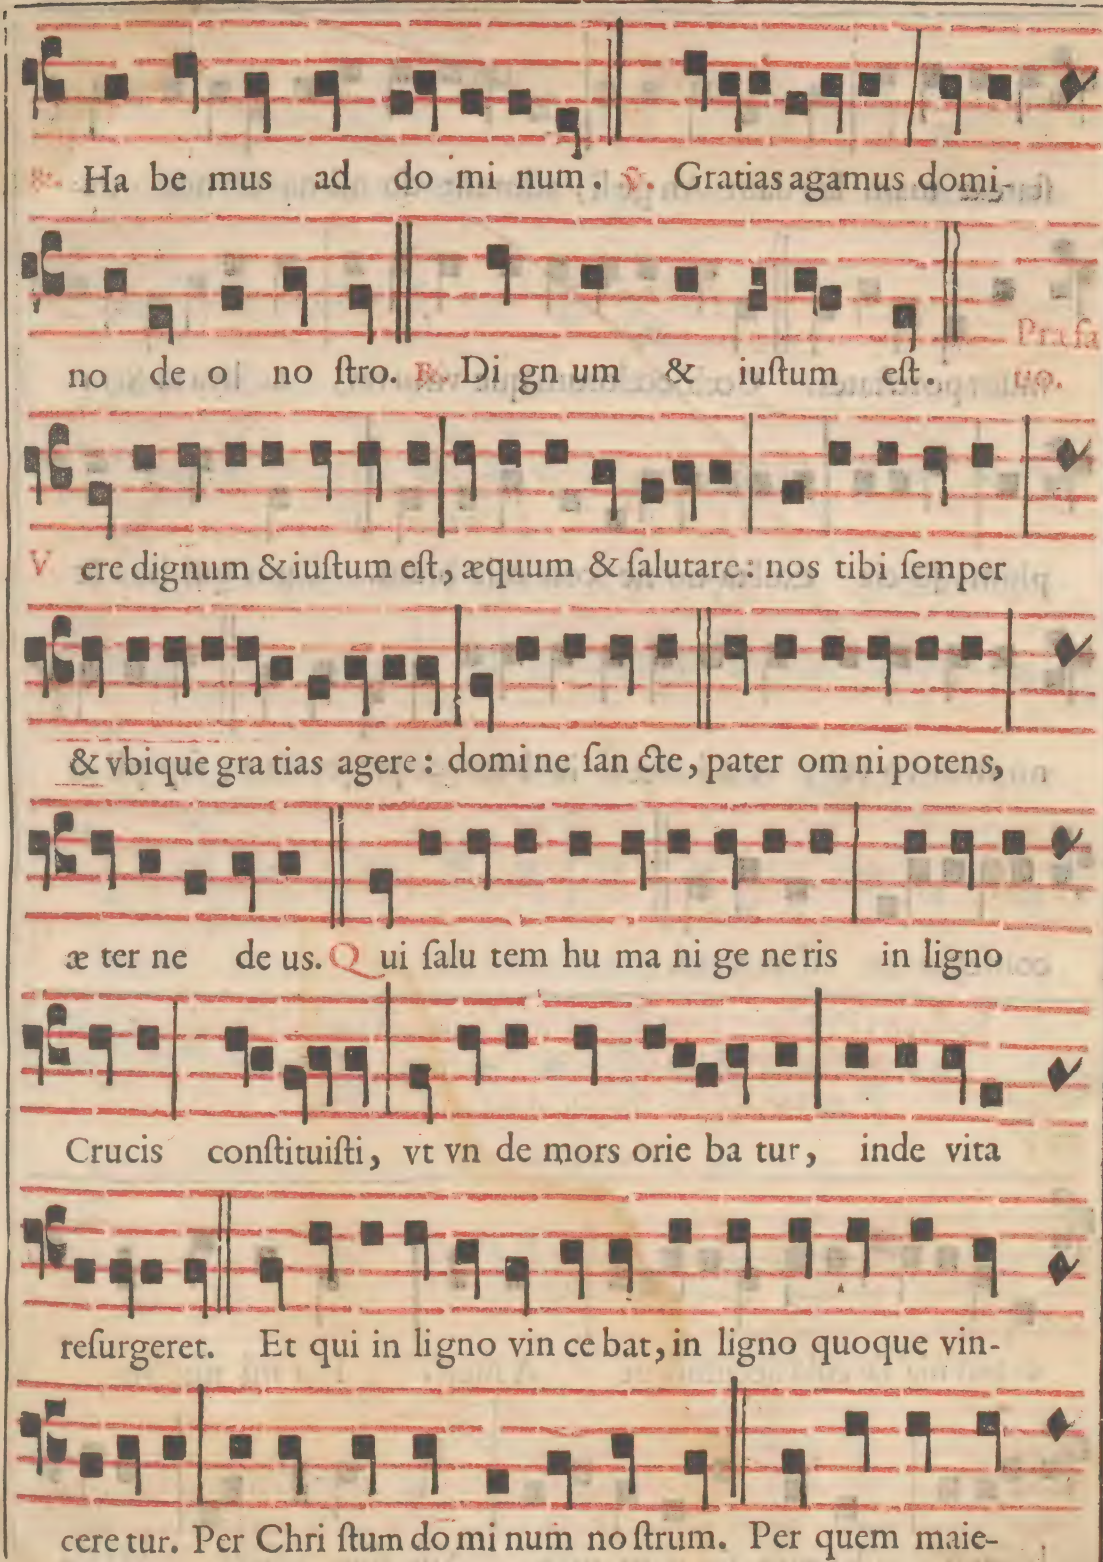 ℟. Ha be mus ad do mi num. ℣. Gratias agamus domi-
no de o no ſtro. ℟. Di gn um & iuſtum eſt. Præfa
tio.
V ere dignum & iuſtum eſt, æquum & ſalutare: nos tibi ſemper
& vbique gra tias agere: domi ne ſan cte, pater om ni potens,
æ ter ne de us. Q ui ſalu tem hu ma ni ge ne ris in ligno
Crucis conſtituiſti, vt vn de mors orie ba tur, inde vita
reſurgeret. Et qui in ligno vin ce bat, in ligno quoque vin-
cere tur. Per Chri ſtum do mi num no ſtrum. Per quem maie-